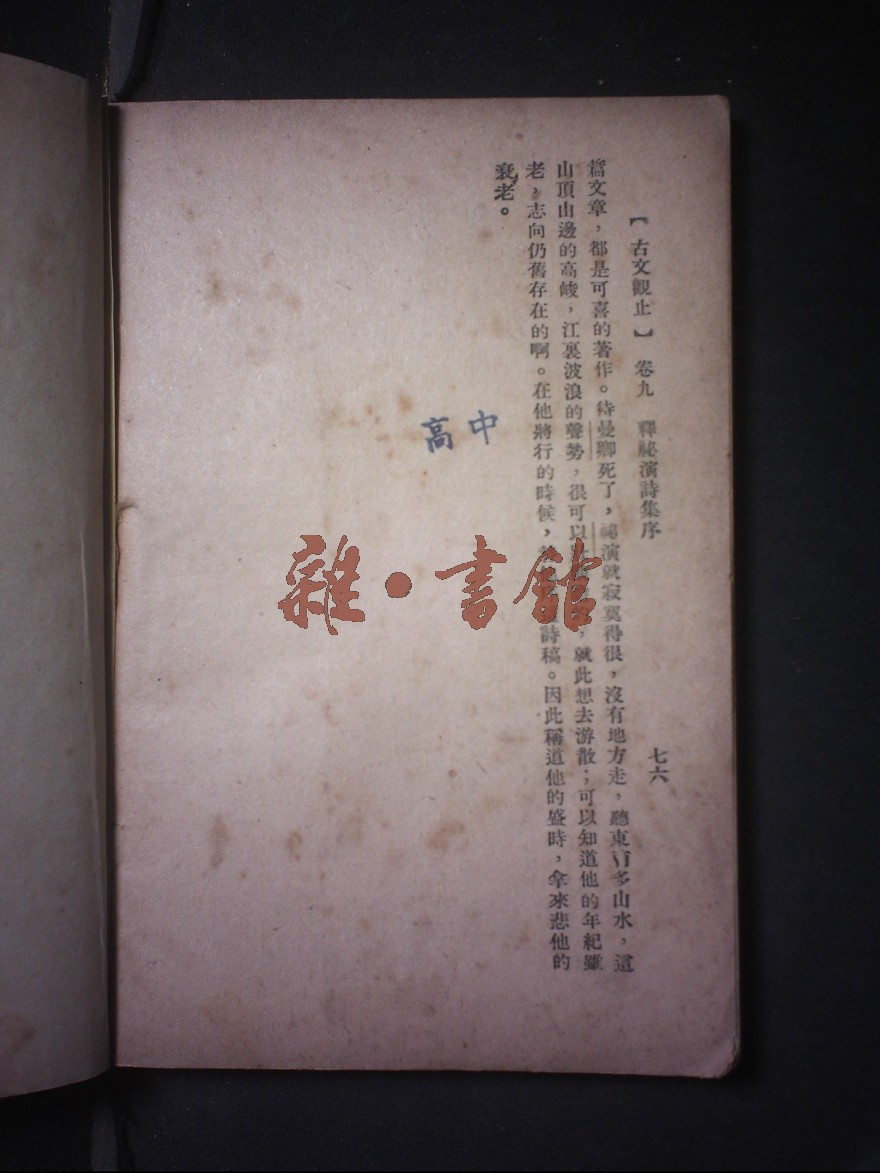 【古文觀止】卷九　釋祕演詩集序　七六
篇文章，都是可喜的著作。待曼卿死了，祕演就寂寞得很，沒有地方走，聽東南多山水，這
山頂山邊的高峻，江裏波浪的聲勢，很可以，就此想去游散；可以知道他的年紀雖
老，志向仍舊存在的啊。在他將行的時候，詩稿。因此稱道他的盛時，拿來悲他的
衰老。
高中
雜·書館